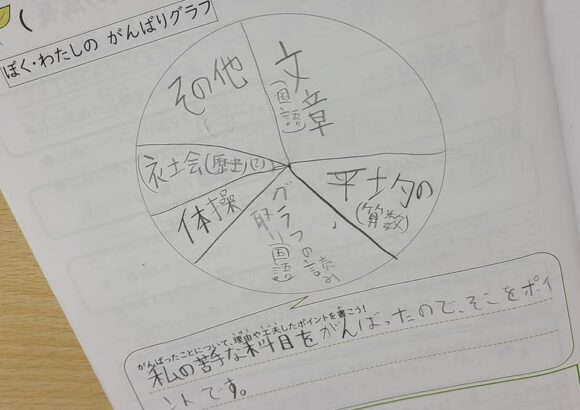 (
ぼく・わたしの がんばりグラフ
その他
文章
(国語)
社会(歴史)(2)
体操
グラフの読み
取り国語
平均の
(算数)
がんばったことについて、理由や工夫したポイントを書こう!
私の苦手な科目をがんばったので、そこをポイ
ントです。